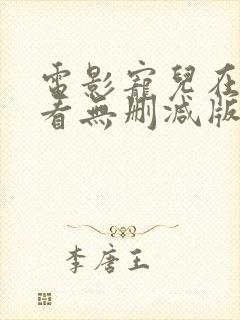 電影寵兒在
看無刪減版
李唐王